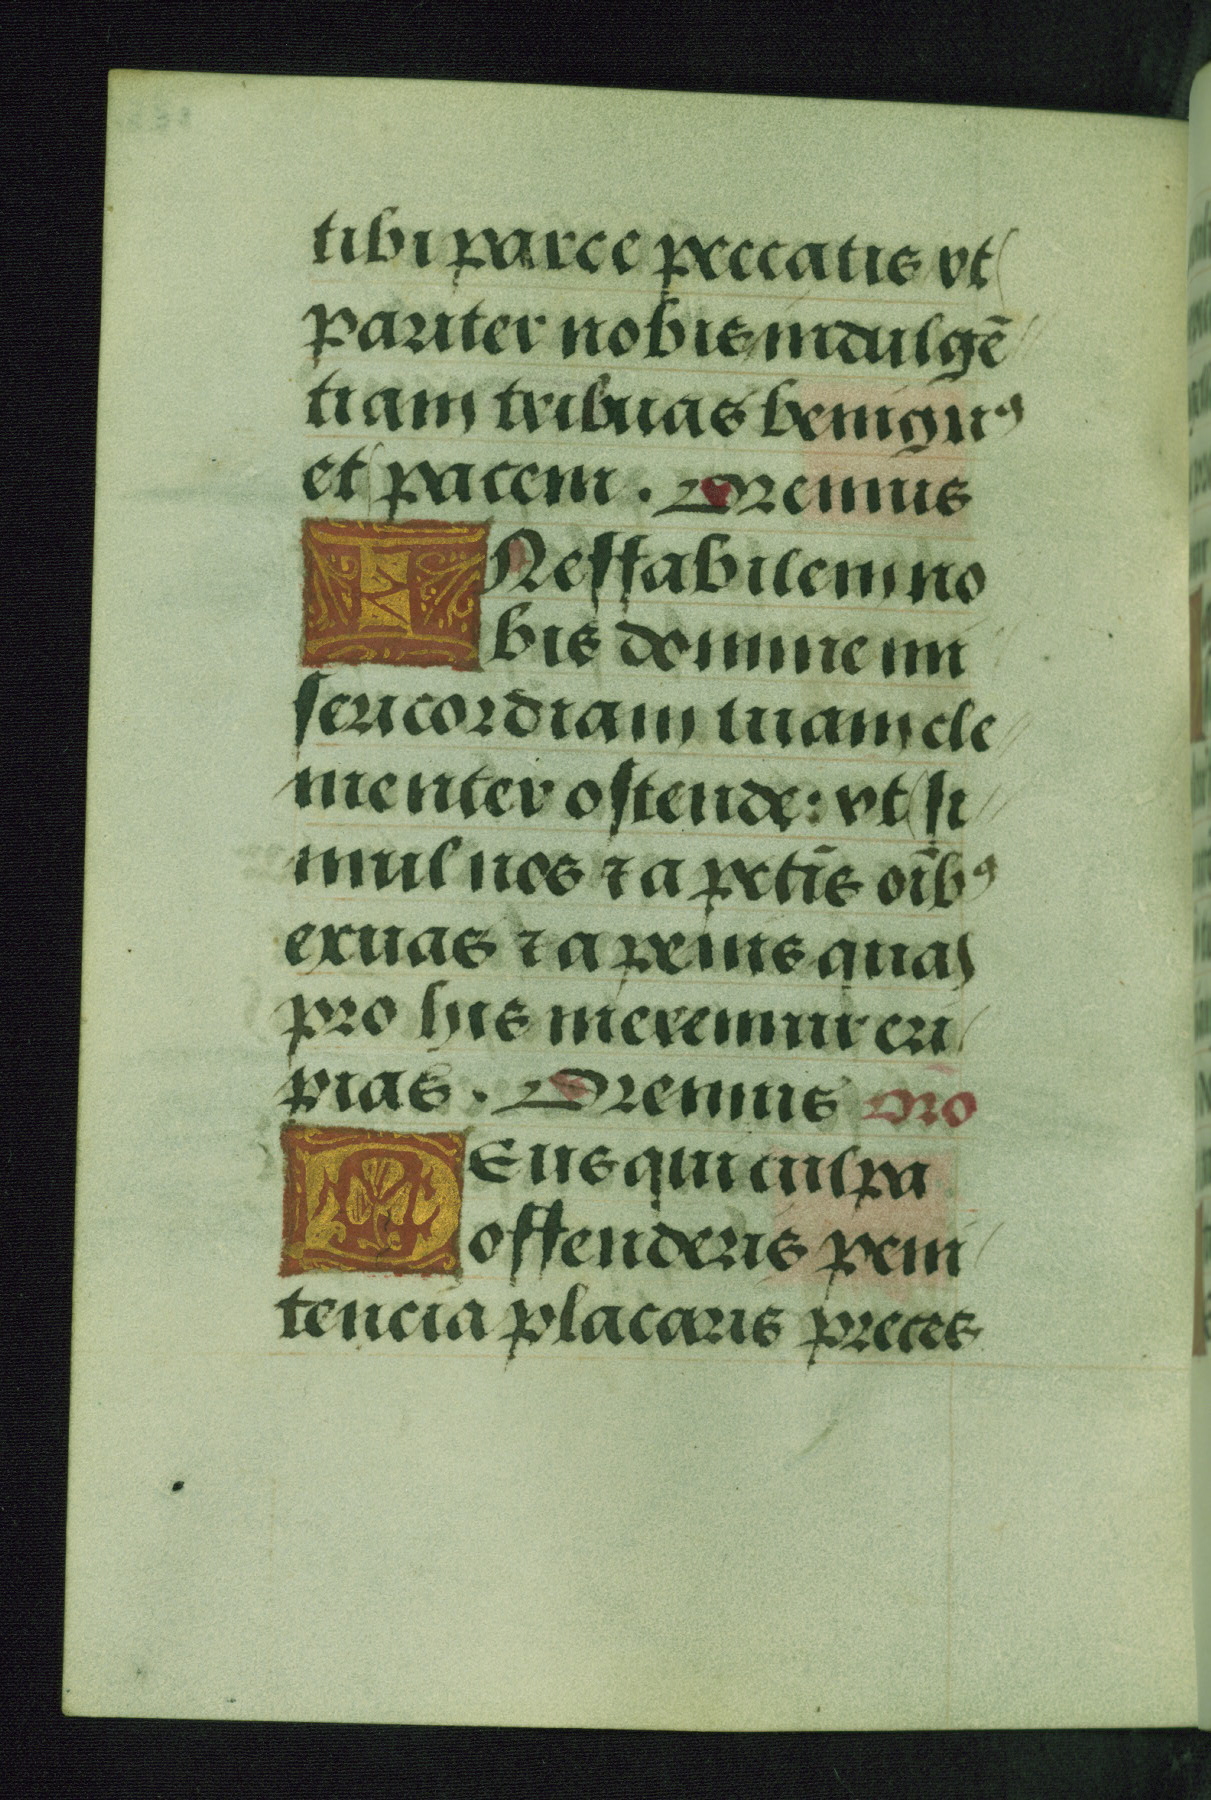 tibi parce peccatis vt
pariter nobis indulgē
tiam tribuas benignꝰ
et pacem. Oremus
INeffabilem no
bis domine mi
sericordiam tuam cle
menter ostende: vt si
mul nos ⁊ a pctīs oībꝰ
exuas ⁊ a penis quas
pro hiis meremur eri
pias. Oremus Oro
DEus qui culpa
offenderis peni
tencia placaris preces